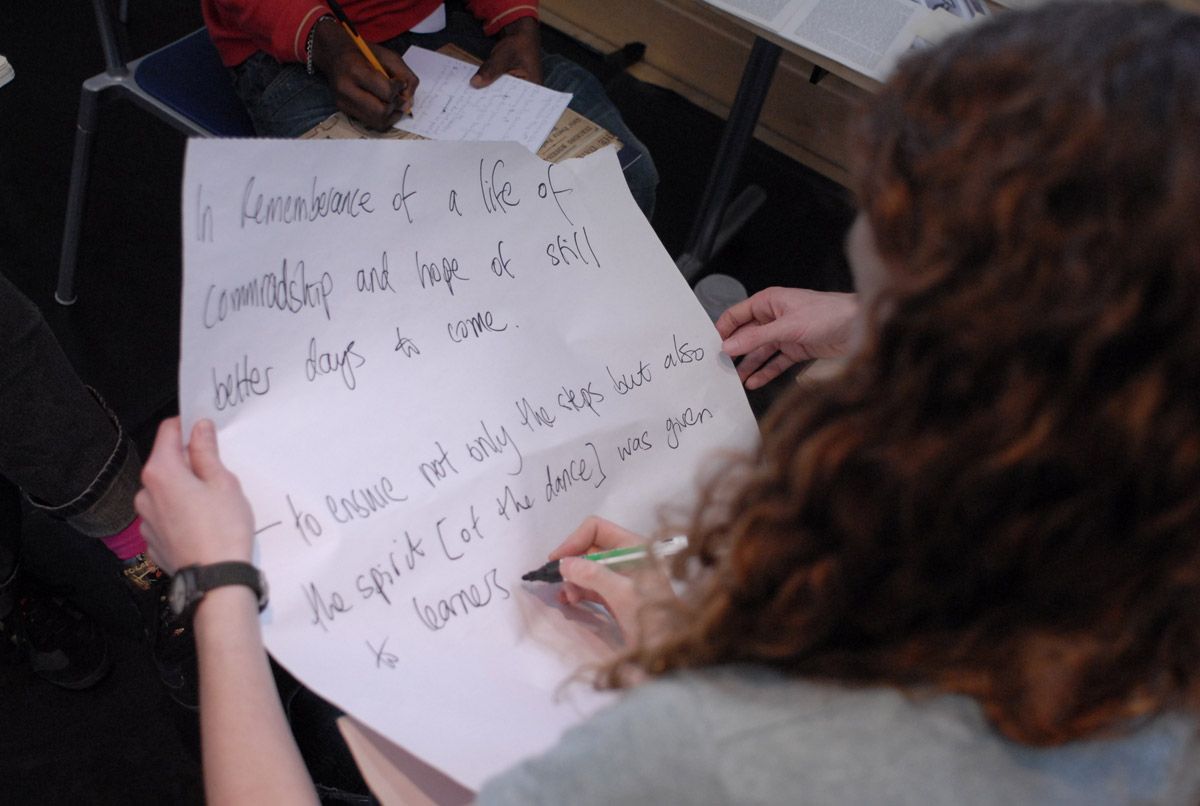 In Rememberance of a life of
commradship and hope of still
better days to come.
– to ensure not only the steps but also
the spirit [of the dance] was given
to learners